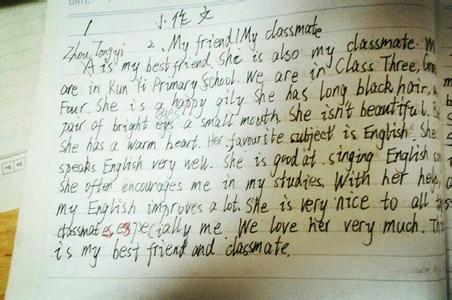 DATE
1 小作文
Zhou Tongyi 2. My friend/My classmate
A is my best friend. She is also my classmate.
are in Kun Yi Primary School. We are in Class Three,
Four. She is a happy gily. She has long black hair,
pair of bright eys eyes a small mouth. She isn't beautiful.
She has a warm heart. Her favourite subject is English. She
speaks English very well. She is good at singing English
She often encourages me in my studies. With her help,
my English improves a lot. She is very nice to all
classmates, especially me. We love her very much.
is my best friend and classmate.